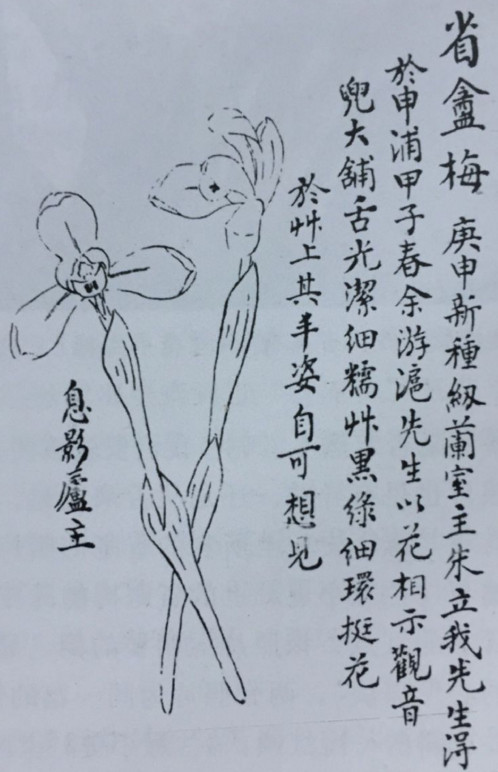 省盦梅 庚申新種級蘭室主朱立我先生淂
於申浦甲子春余游滬先生以花相示觀音
兜大舖舌光潔细糯艸黑綠细環挺花
於艸上其丰姿自可想見
息影廬主